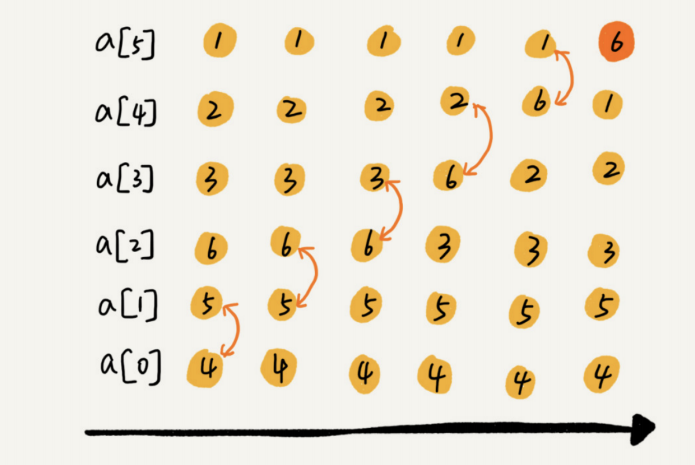 a[5] 1 1 1 1 1 6
a[4] 2 2 2 2 6 1
a[3] 3 3 3 6 2 2
a[2] 6 6 6 3 3 3
a[1] 5 5 5 5 5 5
a[0] 4 4 4 4 4 4